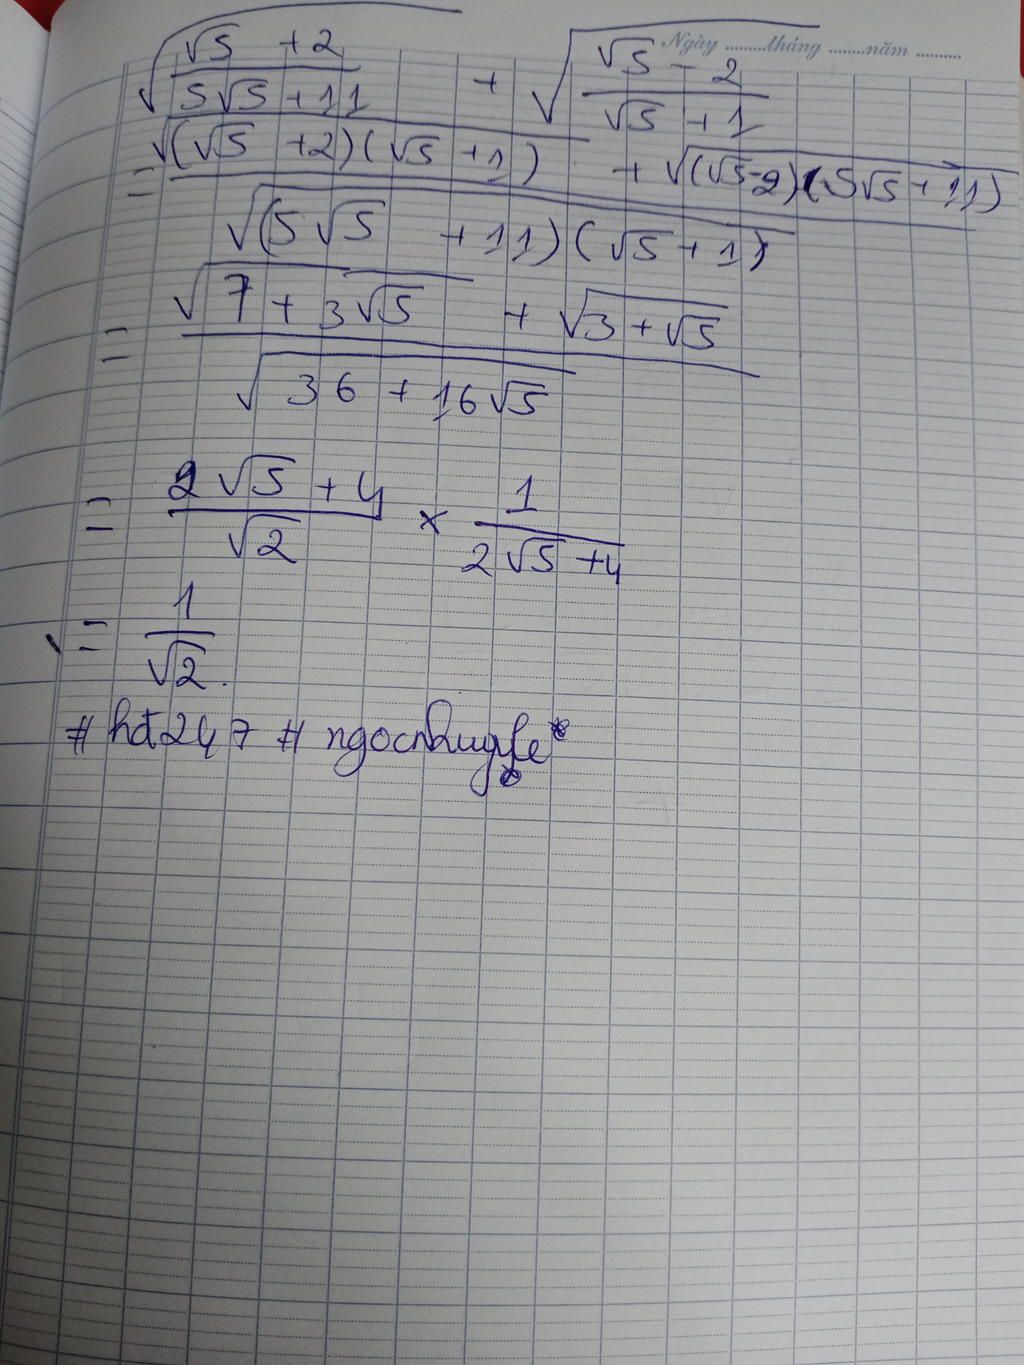 Ngày ........tháng .......năm .........
√((√5 + 2)/(5√5 + 11)) + √((√5 - 2)/(√5 + 1))
= (√((√5 + 2)(√5 + 1)) + √((√5-2)(5√5 + 11)))/√((5√5 + 11)(√5 + 1))
= (√(7 + 3√5) + √(3 + √5))/√(36 + 16√5)
= (2√5 + 4)/√2 × 1/(2√5 + 4)
= 1/√2.
# hđ247 # ngocnhugle